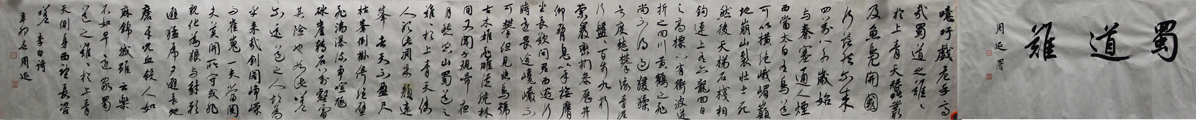 蜀道難
周延 署
噫吁戲危乎高
哉蜀道之難難
於上青天蠶叢
及魚鳧開國
何茫然爾來
四萬八千歲始
與秦塞通人煙
西當太白有鳥道
可以橫絕峨嵋巔
地崩山裂壯士死
然後天梯石棧相
鉤連上有六龍回日
之高標下有衝波逆
折之回川黃鶴之飛
尚不得過猿猱
欲度愁攀援青泥
何盤盤百步九折
縈巖巒捫參歷井
仰脅息以手撫膺
坐長歎問君西遊何
時還畏途巉巖不
可攀但見悲鳥號
古木雄飛雌從繞林
間又聞子規啼夜
月愁空山蜀道之
難難於上青天使
人聽此凋朱顏連
峯去天不盈尺
枯松倒掛倚絕壁
飛湍瀑流爭喧豗
砯崖轉石萬壑雷
其險也如此嗟
爾遠道之人胡為
乎來哉劍閣崢嶸
而崔嵬一夫當關萬
夫莫開所守或匪
親化為狼與豺朝
避猛虎夕避長蛇
磨牙吮血殺人如
麻錦城雖云樂
不如早還家蜀
道之難難於上青
天側身西望長咨
嗟 李白詩
辛卯 周延